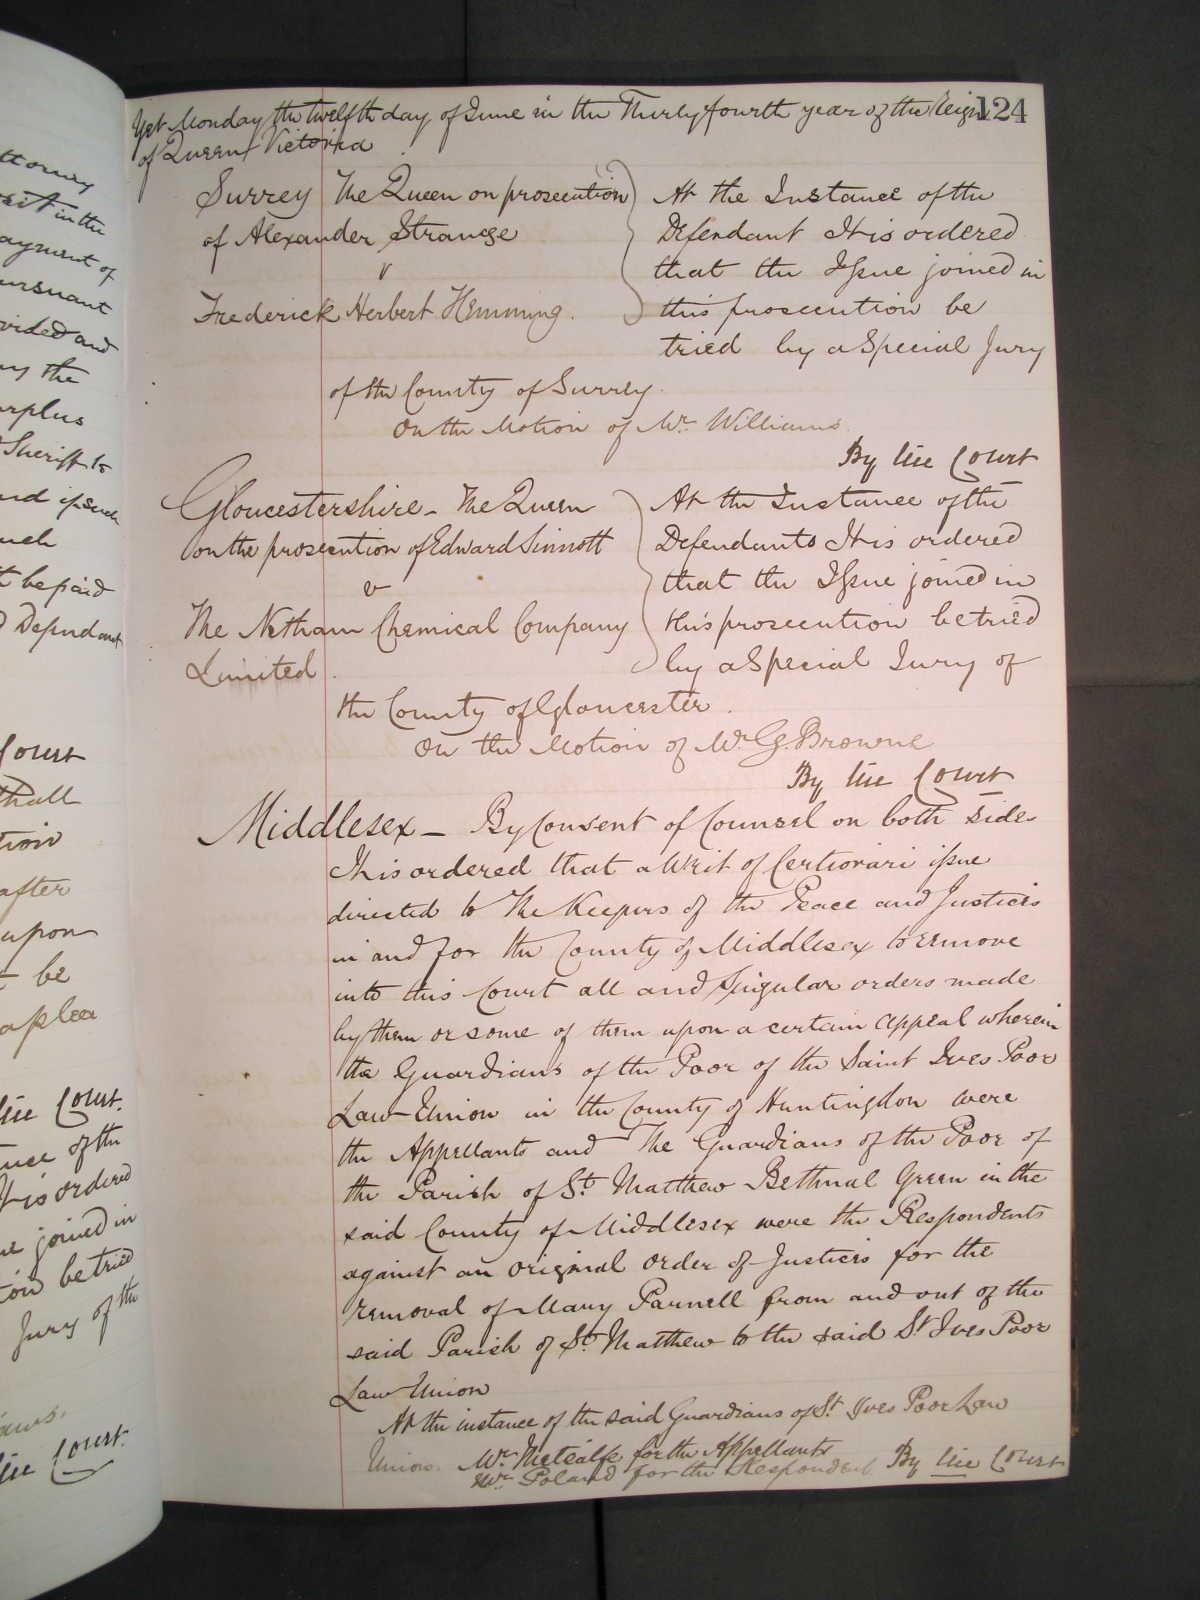 124
Yet Monday the twelfth day of June in the Thirty fourth year of the Reign
of Queen Victoria
Surrey The Queen on prosecution
of Alexander Strange
v
Frederick Herbert Hemming.
At the Instance of the
Defendant It is ordered
that the Issue joined in
this prosecution be
tried by a Special Jury
of the County of Surrey.
On the Motion of Mr. Williams.
By the Court
Gloucestershire - The Queen
on the prosecution of Edward Sinnott
v
The Netham Chemical Company
Limited
At the Instance of the
Defendants It is ordered
that the Issue joined in
this prosecution be tried
by a Special Jury of
the County of Gloucester.
On the Motion of Mr. G. Browne
By the Court
Middlesex - By Consent of Counsel on both sides
It is ordered that a Writ of Certiorari issue
directed to The Keepers of the Peace and Justices
in and for the County of Middlesex to remove
into this Court all and Singular orders made
by them or some of them upon a certain appeal wherein
the Guardians of the Poor of the Saint Ives Poor
Law Union in the County of Huntingdon were
the Appellants and The Guardians of the Poor of
the Parish of St. Matthew Bethnal Green in the
said County of Middlesex were the Respondents
against an original order of Justices for the
removal of Mary Parnell from and out of the
said Parish of St. Matthew to the said St. Ives Poor
Law Union
At the instance of the said Guardians of St. Ives Poor Law
Union. Mr. Metcalfe for the Appellants
Mr. Poland for the Respondents By the Court
ttorney
in the
ayment of
ursuant
vided and
the
urplus
Sheriff to
nd if such
uch
be paid
Defendant
Court
shall
tion
after
upon
be
a plea
the Court.
nce of the
It is ordered
ue joined in
tion be tried
Jury of the
the Court.